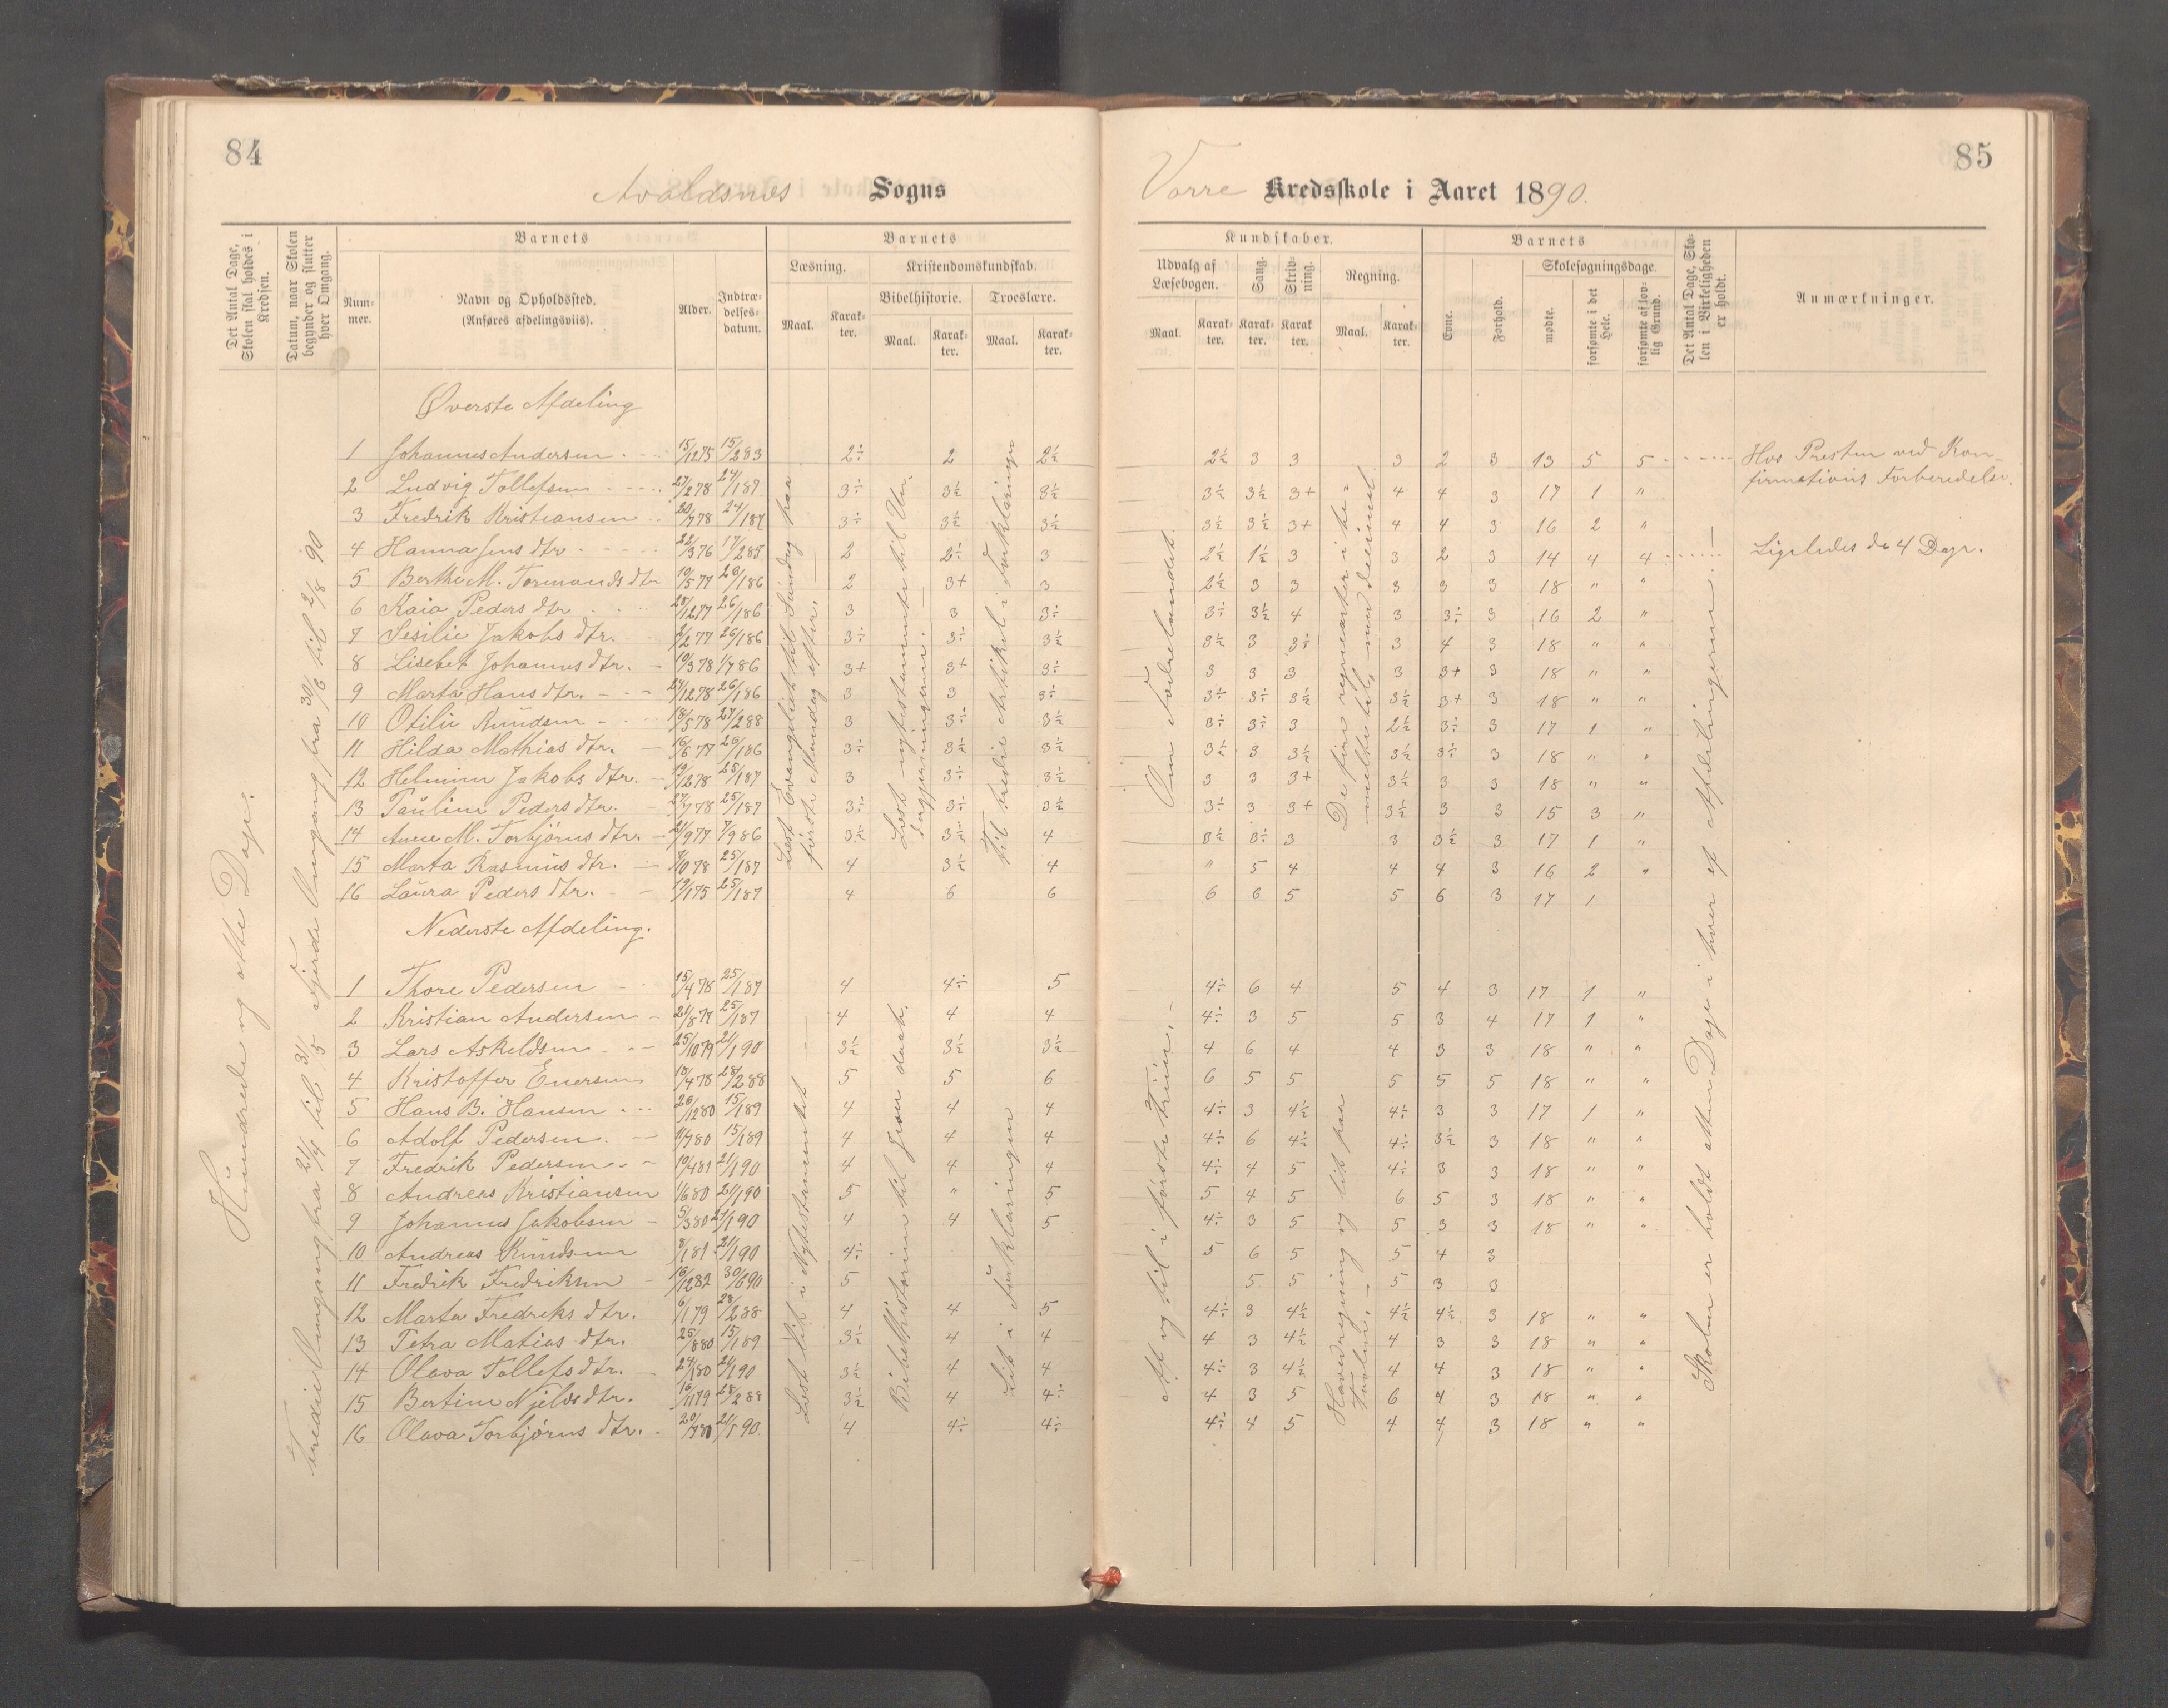 84
Avaldsnes Sogns
Det Antal Dage, Skolen skal holdes i Kredsen.
Datum, naar Skolen begynder og slutter hver Omgang.
Barnets
Num-mer.
Navn og Opholdssted.
(Anføres afdelingsviis).
Alder.
Indtræ-delses-datum.
Barnets
Læsning.
Kristendomskundskab.
Bibelhistorie.
Troeslære.
Maal.
Karak-ter.
Maal.
Karak-ter.
Maal.
Karak-ter.
Hundrede og otte Dage.
tredie Omgang fra 21/4 til 31/5 fjerde Omgang fra 30/6 til 2/8 90
Øverste Afdeling
1 Johannes Andersen 15/12 75 15/2 83 2÷ 2 2½
2 Ludvig Tollefsen 27/2 78 24/1 87 3÷ 3½ 3½
3 Fredrik Kristiansen 20/7 78 24/1 87 3÷ 3½ 3½
4 Hanna Jens dtr 22/3 76 17/2 85 2 2÷ 3
5 Berthe M. Tormonds dtr 10/5 77 26/1 86 2 3+ 3
6 Kaia Peders dtr 28/12 77 26/1 86 3 3 3÷
7 Sesilie Jakobs dtr. 2/2 77 26/1 86 3÷ 3÷ 3½
8 Lisebet Johannes dtr. 10/3 78 1/7 86 3+ 3+ 3÷
9 Marta Hans dtr. 24/12 78 26/1 86 3 3 3÷
10 Otilie Knudsen 18/5 78 27/2 88 3 3÷ 3½
11 Hilda Mathias dtr. 16/6 77 26/1 86 3÷ 3½ 3½
12 Helmine Jakobs dtr. 19/12 78 25/1 87 3 3÷ 3½
13 Pauline Peders dtr. 27/7 78 25/1 87 3÷ 3÷ 3½
14 Anne M. Torbjørns dtr. 21/9 77 7/9 86 3½ 3½ 4
15 Marta Rasmus dtr. 25/1 87 4 3½ 4
16 Laura Peders dtr. 19/1 75 25/1 87 4 6 6
Læst Evangeliet til Søndag paa første Mandag efter.
Læst nytestamente til Un-dergjerningerne.
Til tredie Artikel i Forklaringen
Nederste Afdeling.
1 Thore Pedersen 15/4 78 25/1 87 4 4÷ 5
2 Kristian Andersen 21/8 77 25/1 87 4 4 4
3 Lars Askeldsen 25/10 79 21/1 90 3½ 3½ 3½
4 Kristoffer Enersen 18/4 78 28/2 88 5 5 6
5 Hans B. Hansen 26/12 80 15/1 89 4 4 4
6 Adolf Pedersen 11/7 80 15/1 89 4 4 4
7 Fredrik Pedersen 10/4 81 21/1 90 4 4 4
8 Andreas Kristiansen 1/6 80 21/1 90 5 " 5
9 Johannes Jakobsen 5/3 80 21/1 90 4 4 5
10 Andreas Knudsen 8/1 81 21/1 90 4÷
11 Fredrik Fredriksen 16/12 82 30/6 90 5
12 Marta Fredriks dtr. 6/1 79 28/2 88 4 4 5
13 Petra Matias dtr. 25/8 80 15/1 89 3½ 4 4
14 Olava Tollefs dtr. 24/1 80 21/1 90 3½ 4 4
15 Bertine Njelds dtr. 16/11 79 28/2 88 3½ 4 4÷
16 Olava Torbjørns dtr. 21/1 90. 4 4÷ 4÷
Læst lidt i Nytestamentet
Bibelhistorien til Jesu daab.
Lidt i Forklaringen
85
Vorre Kredsskole i Aaret 1890.
Kundskaber.
Udvalg af Læsebogen.
Sang.
Skriv-ning.
Regning.
Maal.
Karak-ter.
Karak-ter.
Karak-ter.
Maal.
Karak-ter.
Barnets
Evne.
Forhold.
Skolesøgningsdage.
mødte.
forsømte i det Hele.
forsømte af lov-lig Grund.
Det Antal Dage, Sko-len i Virkeligheden er holdt.
Anmærkninger.
2½ 3 3 3 2 3 13 5 5 Hos Presten ved Kon-
firmations Forberedelse.
3½ 3½ 3+ 4 4 3 17 1 "
3½ 3½ 3+ 4 4 3 16 2 "
2½ 1½ 3 3 2 3 14 4 4 Ligeledes de 4 Dage.
2½ 3 3 3 3 3 18 " "
3÷ 3½ 4 3 3÷ 3 16 2 "
3½ 3 3÷ 3 4 3 18 " "
3 3 3 3 3+ 3 18 " "
3÷ 3÷ 3½ 3½ 3+ 3 18 " "
3÷ 3÷ 3 2½ 3÷ 3 17 1 "
3½ 3 3½ 3½ 3÷ 3 18 " "
3 3 3+ 3½ 3 3 18 " "
3÷ 3 3+ 3½ 3 3 15 3 "
3½ 3÷ 3 3 3½ 3 17 1 "
" 5 4 4 4 3 16 2 "
6 6 5 5 6 3 17 1
Om Fædrelandet.
De fire regnearter i be-nevnte tal,
4÷ 6 4 5 4 3 17 1 "
4÷ 3 5 5 3 4 17 1 "
4 6 4 4 3 3 18 " "
6 5 5 5 5 5 18 " "
4÷ 3 4½ 4÷ 3 3 17 1 "
4÷ 6 4½ 4÷ 3½ 3 18 " "
4÷ 4 5 4÷ 3 3 18 " "
5 4 5 6 5 3 18 " "
4÷ 3 5 5 3 3 18 " "
5 6 5 5 4 3
5 5 5 3 3
4÷ 3 4½ 4½ 4½ 3 18 " "
4 3 4½ 4 3 3 18 " "
4÷ 3 4½ 4 4 3 18 " "
4 3 5 6 4 3 18 " "
4÷ 4 5 4 4 3 18 " "
Af og til i første Trin.
Hovedregning og lidt paa Tavlen.
Skolen er holdt atten Dage i hver af Afdelingerne.